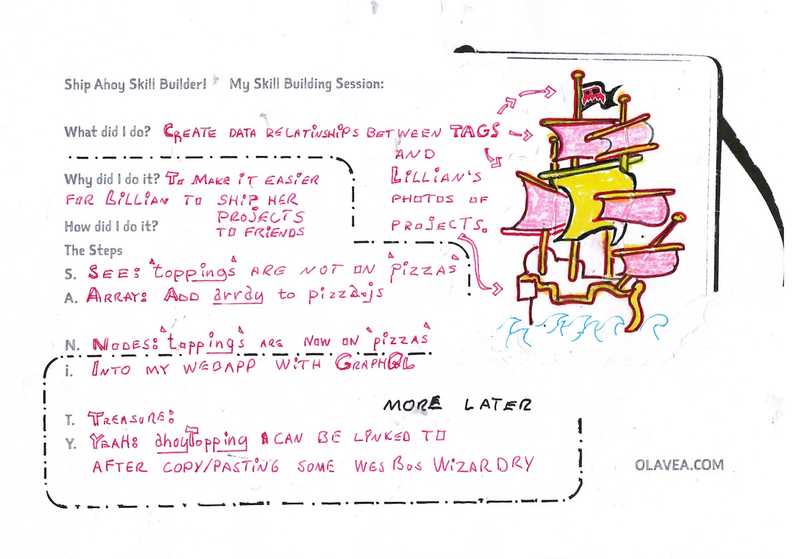 Ship Ahoy Skill Builder! My Skill Building Session:
What did I do? CREATE DATA RELATINSHIPS BETWEEN TAGS
AND
LILLIAN'S
PHOTOS OF
PROJECTS.
Why did I do it? TO MAKE IT EASIER
FOR LILLIAN TO SHIP HER
PROJECTS
TO FRIENDS
How did I do it?
The Steps
S. SEE: "toppings" ARE NOT ON "pizzas"
A. ARRAY: ADD array to pizza.js
N. NODES: "toppings" ARE NOW ON "pizzas"
i. INTO MY WEBAPP WITH GRAPHQL
MORE LATER
T. TREASURE:
Y. YEAH: ahoyTopping CAN BE LINKED TO
AFTER COPY/PASTING SOME WES BOS WIZARDRY
OLAVEA.COM